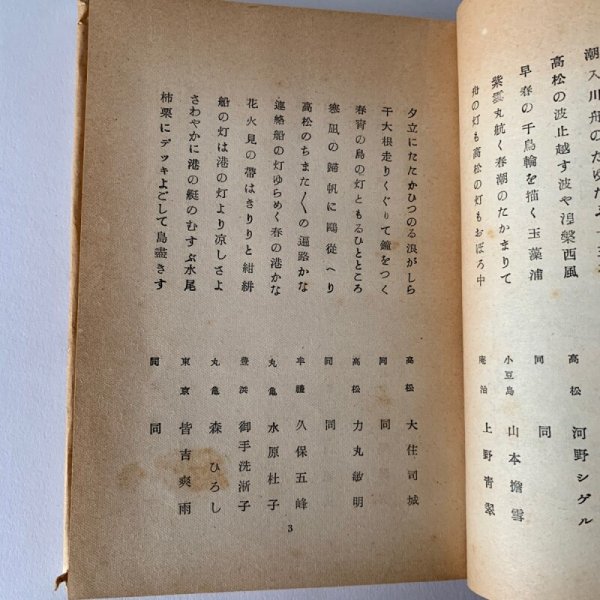 高松の波止越す波や涅槃西風
早春の千鳥輪を描く玉藻浦
紫雲丸航く春潮のたかまりて
舟の灯も高松の灯もおぼろ中
高松 河野シゲル
同 同
小豆島 山本擔雪
庵治 上野青翠
夕立にたたかひつのる浪がしら
干大根走りくぐりて鐘をつく
春宵の島の灯ともるひとところ
寒凪の歸帆に鷗從へり
高松のちまた〳〵の遍路かな
連絡船の灯ゆらめく春の港かな
花火見の帶はきりりと紺絣
船の灯は港の灯より凉しさよ
さわやかに港の艇のむすぶ水尾
柿栗にデッキよごして島盡きす
高松 大住司城
同 同
高松 力丸敏明
同 同
牟禮 久保五峰
丸亀 水原杜子
豊浜 御手洗漸子
丸亀 森ひろし
東京 皆吉爽雨
同 同
3